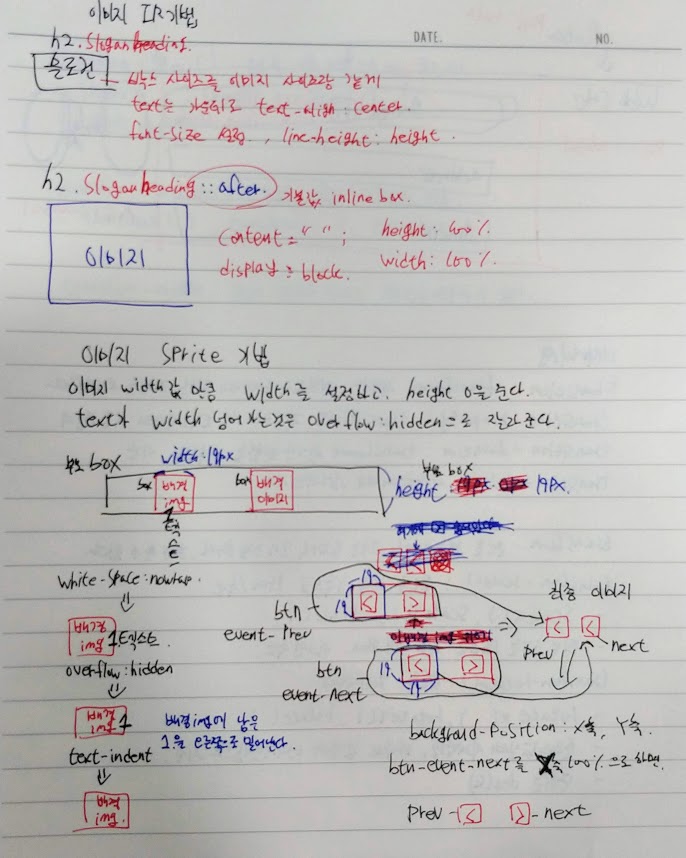 이미지 IR기법
DATE. NO.
h2.Sloganheading.
슬로건
박스 사이즈를 이미지 사이즈랑 같게
text는 가운데로 text-align: center.
font-size 설정, line-height: height.
h2.Sloganheading::after. 기본값 inline box.
이미지
Content = " " ; height: 100%.
display : block. width: 100%.
이미지 Sprite 기법
이미지 width값 만큼 width를 설정하고, height 0을 준다.
text가 width 넘어가는것은 overflow:hidden으로 잘라준다.
부모 box width:19px 부모 box
box 배경 img box 배경 이미지 height: 19px.
텍스트
white-space:nowrap.
배경 img 텍스트
overflow:hidden
배경 img
배경img에 남은
1을 오른쪽으로 밀어낸다.
text-indent
배경 img.
btn event-Prev
19 19
< >
btn event-next
19 19
< >
최종 이미지
< <
Prev next
background-Position: X축, Y축.
btn-event-next를 X축 100%으로하면.
Prev - < > - next